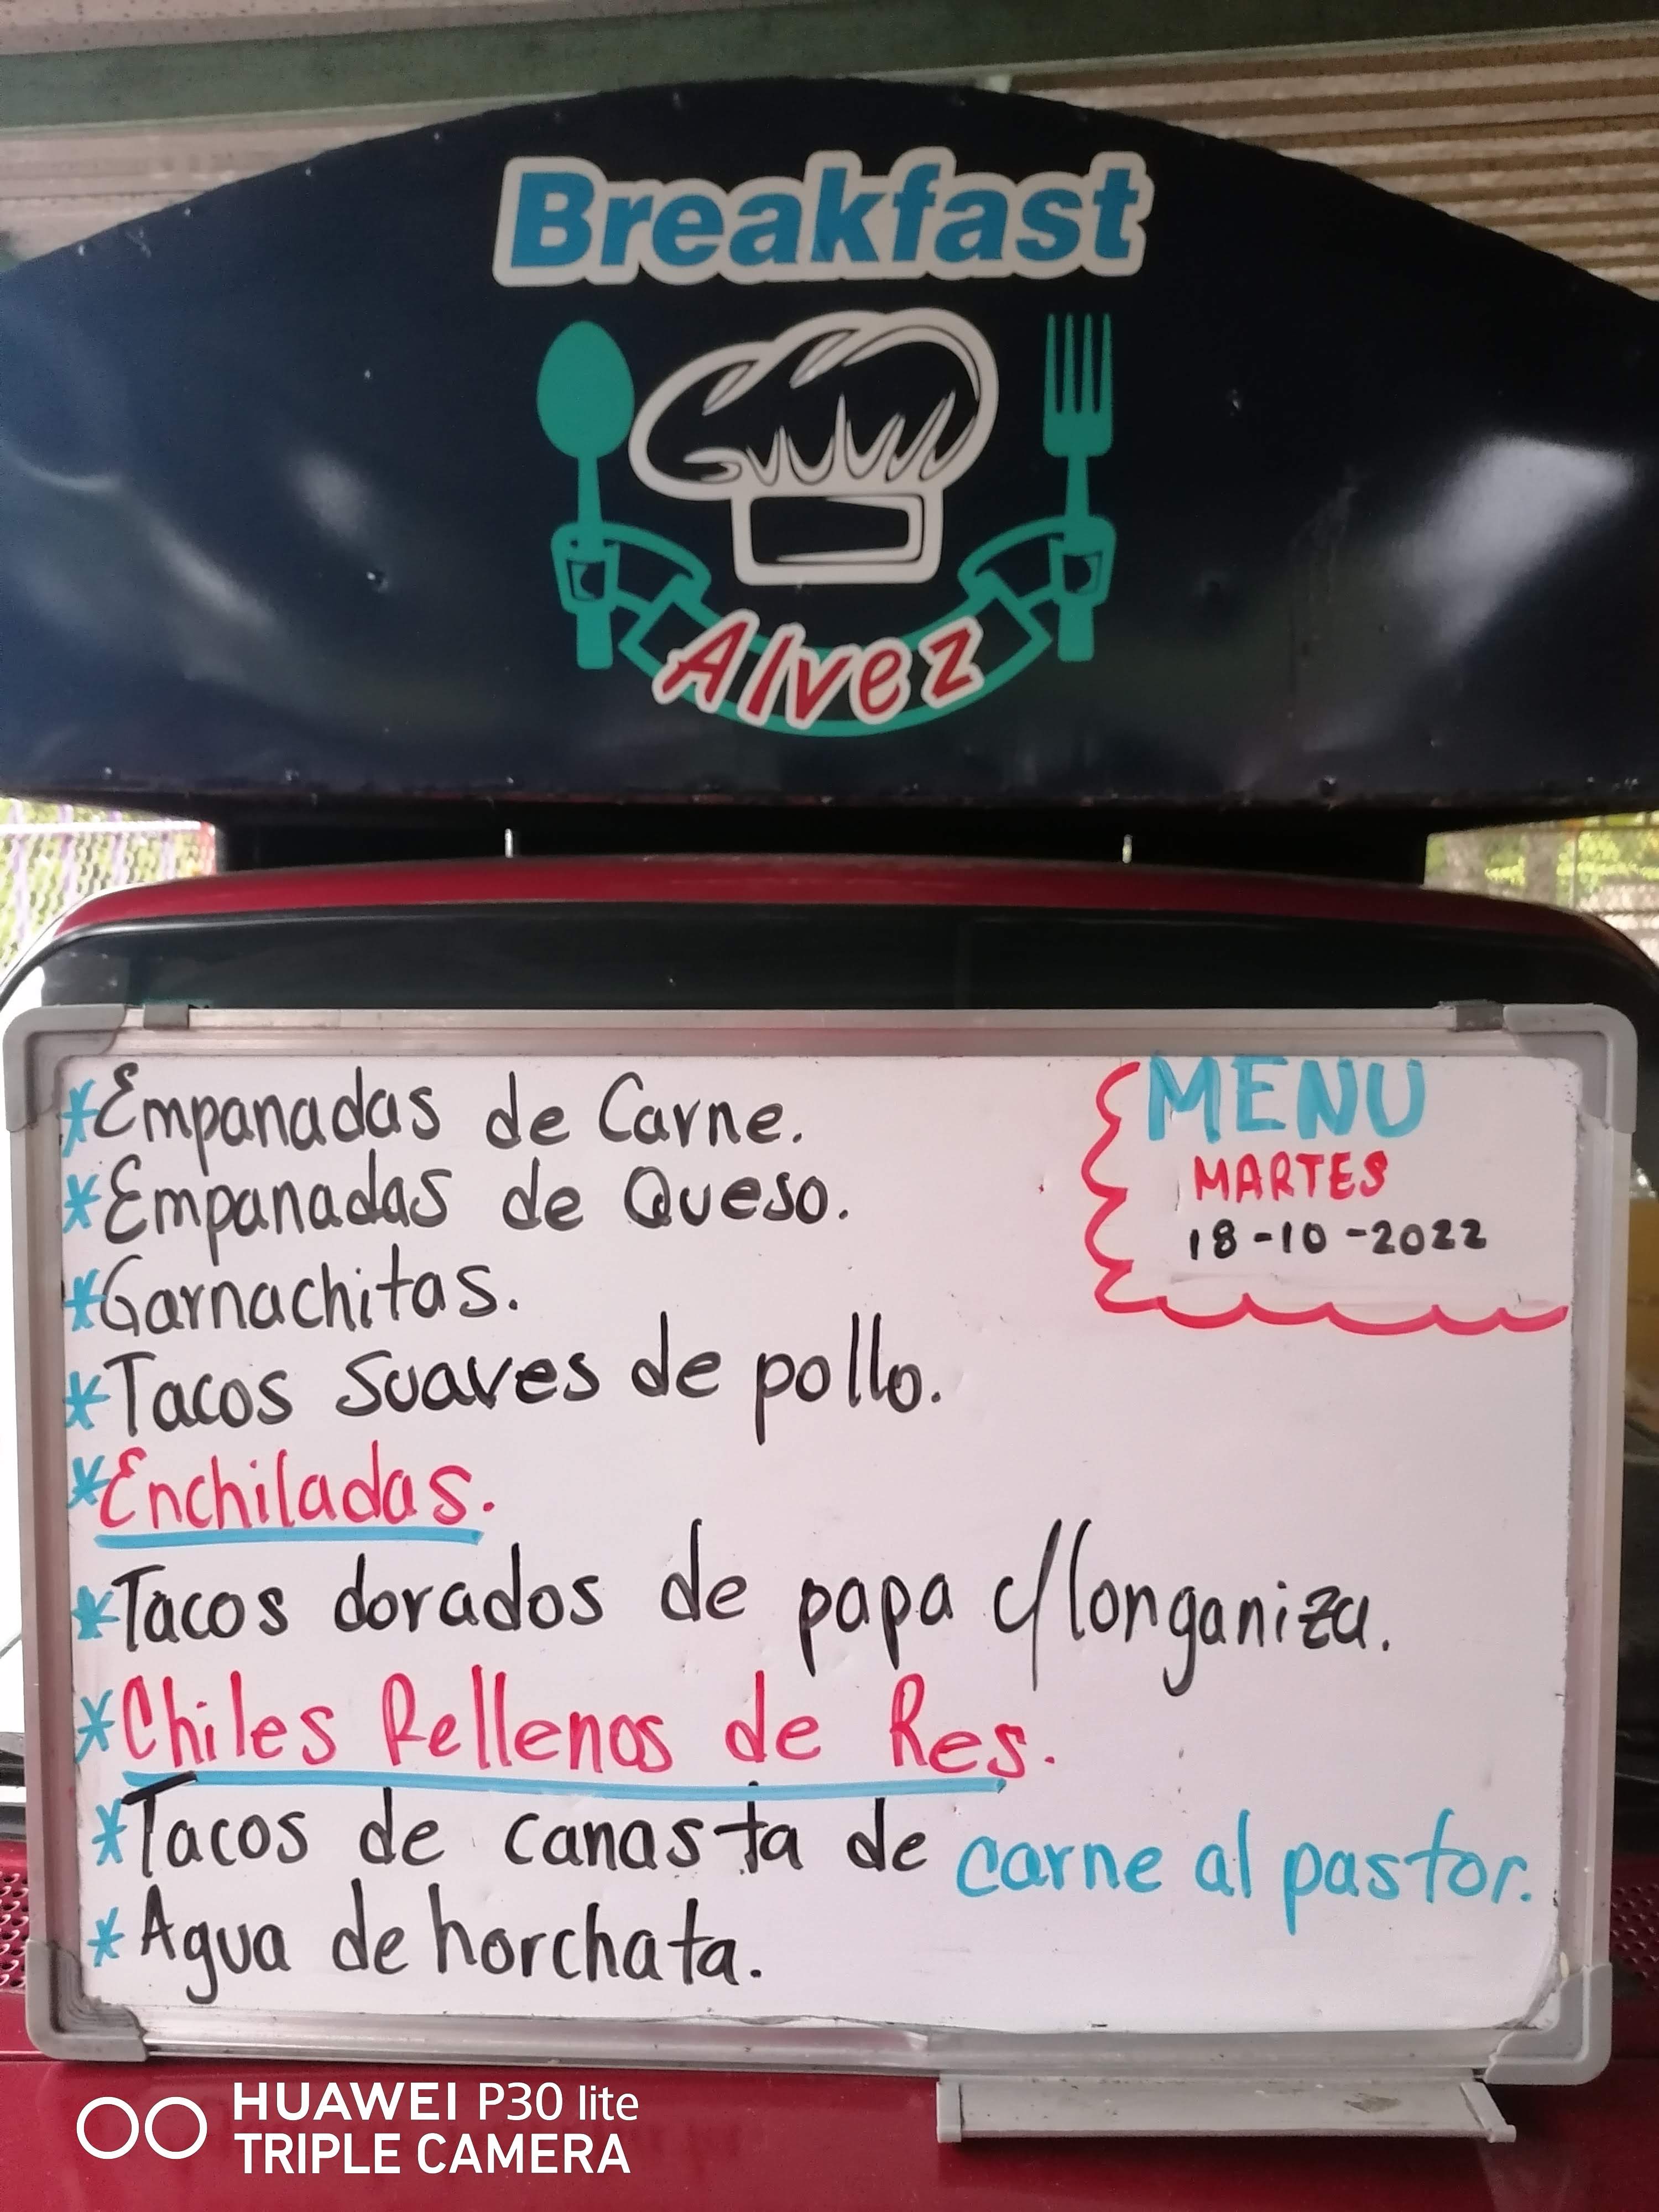 Breakfast
Alvez
MENU
MARTES
18-10-2022
*Empanadas de Carne.
*Empanadas de Queso.
*Garnachitas.
*Tacos suaves de pollo.
*Enchiladas.
*Tacos dorados de papa c/longaniza.
*Chiles Rellenos de Res.
*Tacos de canasta de carne al pastor.
*Agua de horchata.
HUAWEI P30 lite
TRIPLE CAMERA